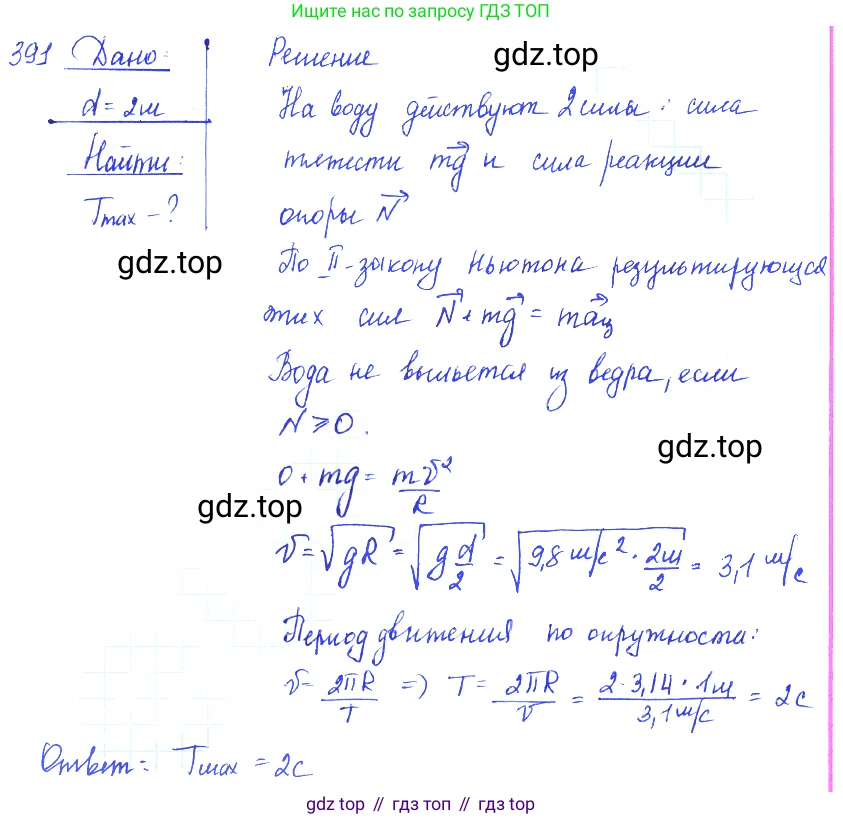 Ищите нас по запросу ГДЗ ТОП
391 Дано: Решение
gdz.top
d = 2м На воду действуют 2 силы: сила
Найти: тяжести mg⃗ и сила реакции
Tmax - ? опоры N⃗
gdz.top
По II-закону Ньютона результирующая
этих сил N⃗ + mg⃗ = ma⃗ц
Вода не выльется из ведра, если
N ⩾ 0.
gdz.top
0 + mg = mv²/R
gdz.top
v = √gR = √(g d/2) = √(9,8 м/с² · 2м/2) = 3,1 м/с
Период движения по окружности:
v = 2πR/T => T = 2πR/v = 2·3,14·1м/3,1 м/с = 2с
Ответ: Tmax = 2с
gdz top // гдз топ // gdz.top